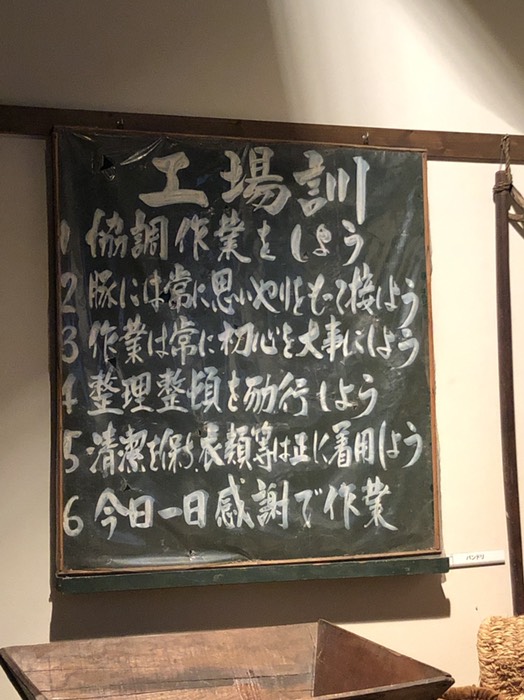 工場訓
1 協調作業をしよう
2 豚には常に思いやりをもって接しよう
3 作業は常に初心を大事にしよう
4 整理整頓を励行しよう
5 清潔を保ち、衣類等は正しく着用しよう
6 今日一日感謝で作業
バンドリ